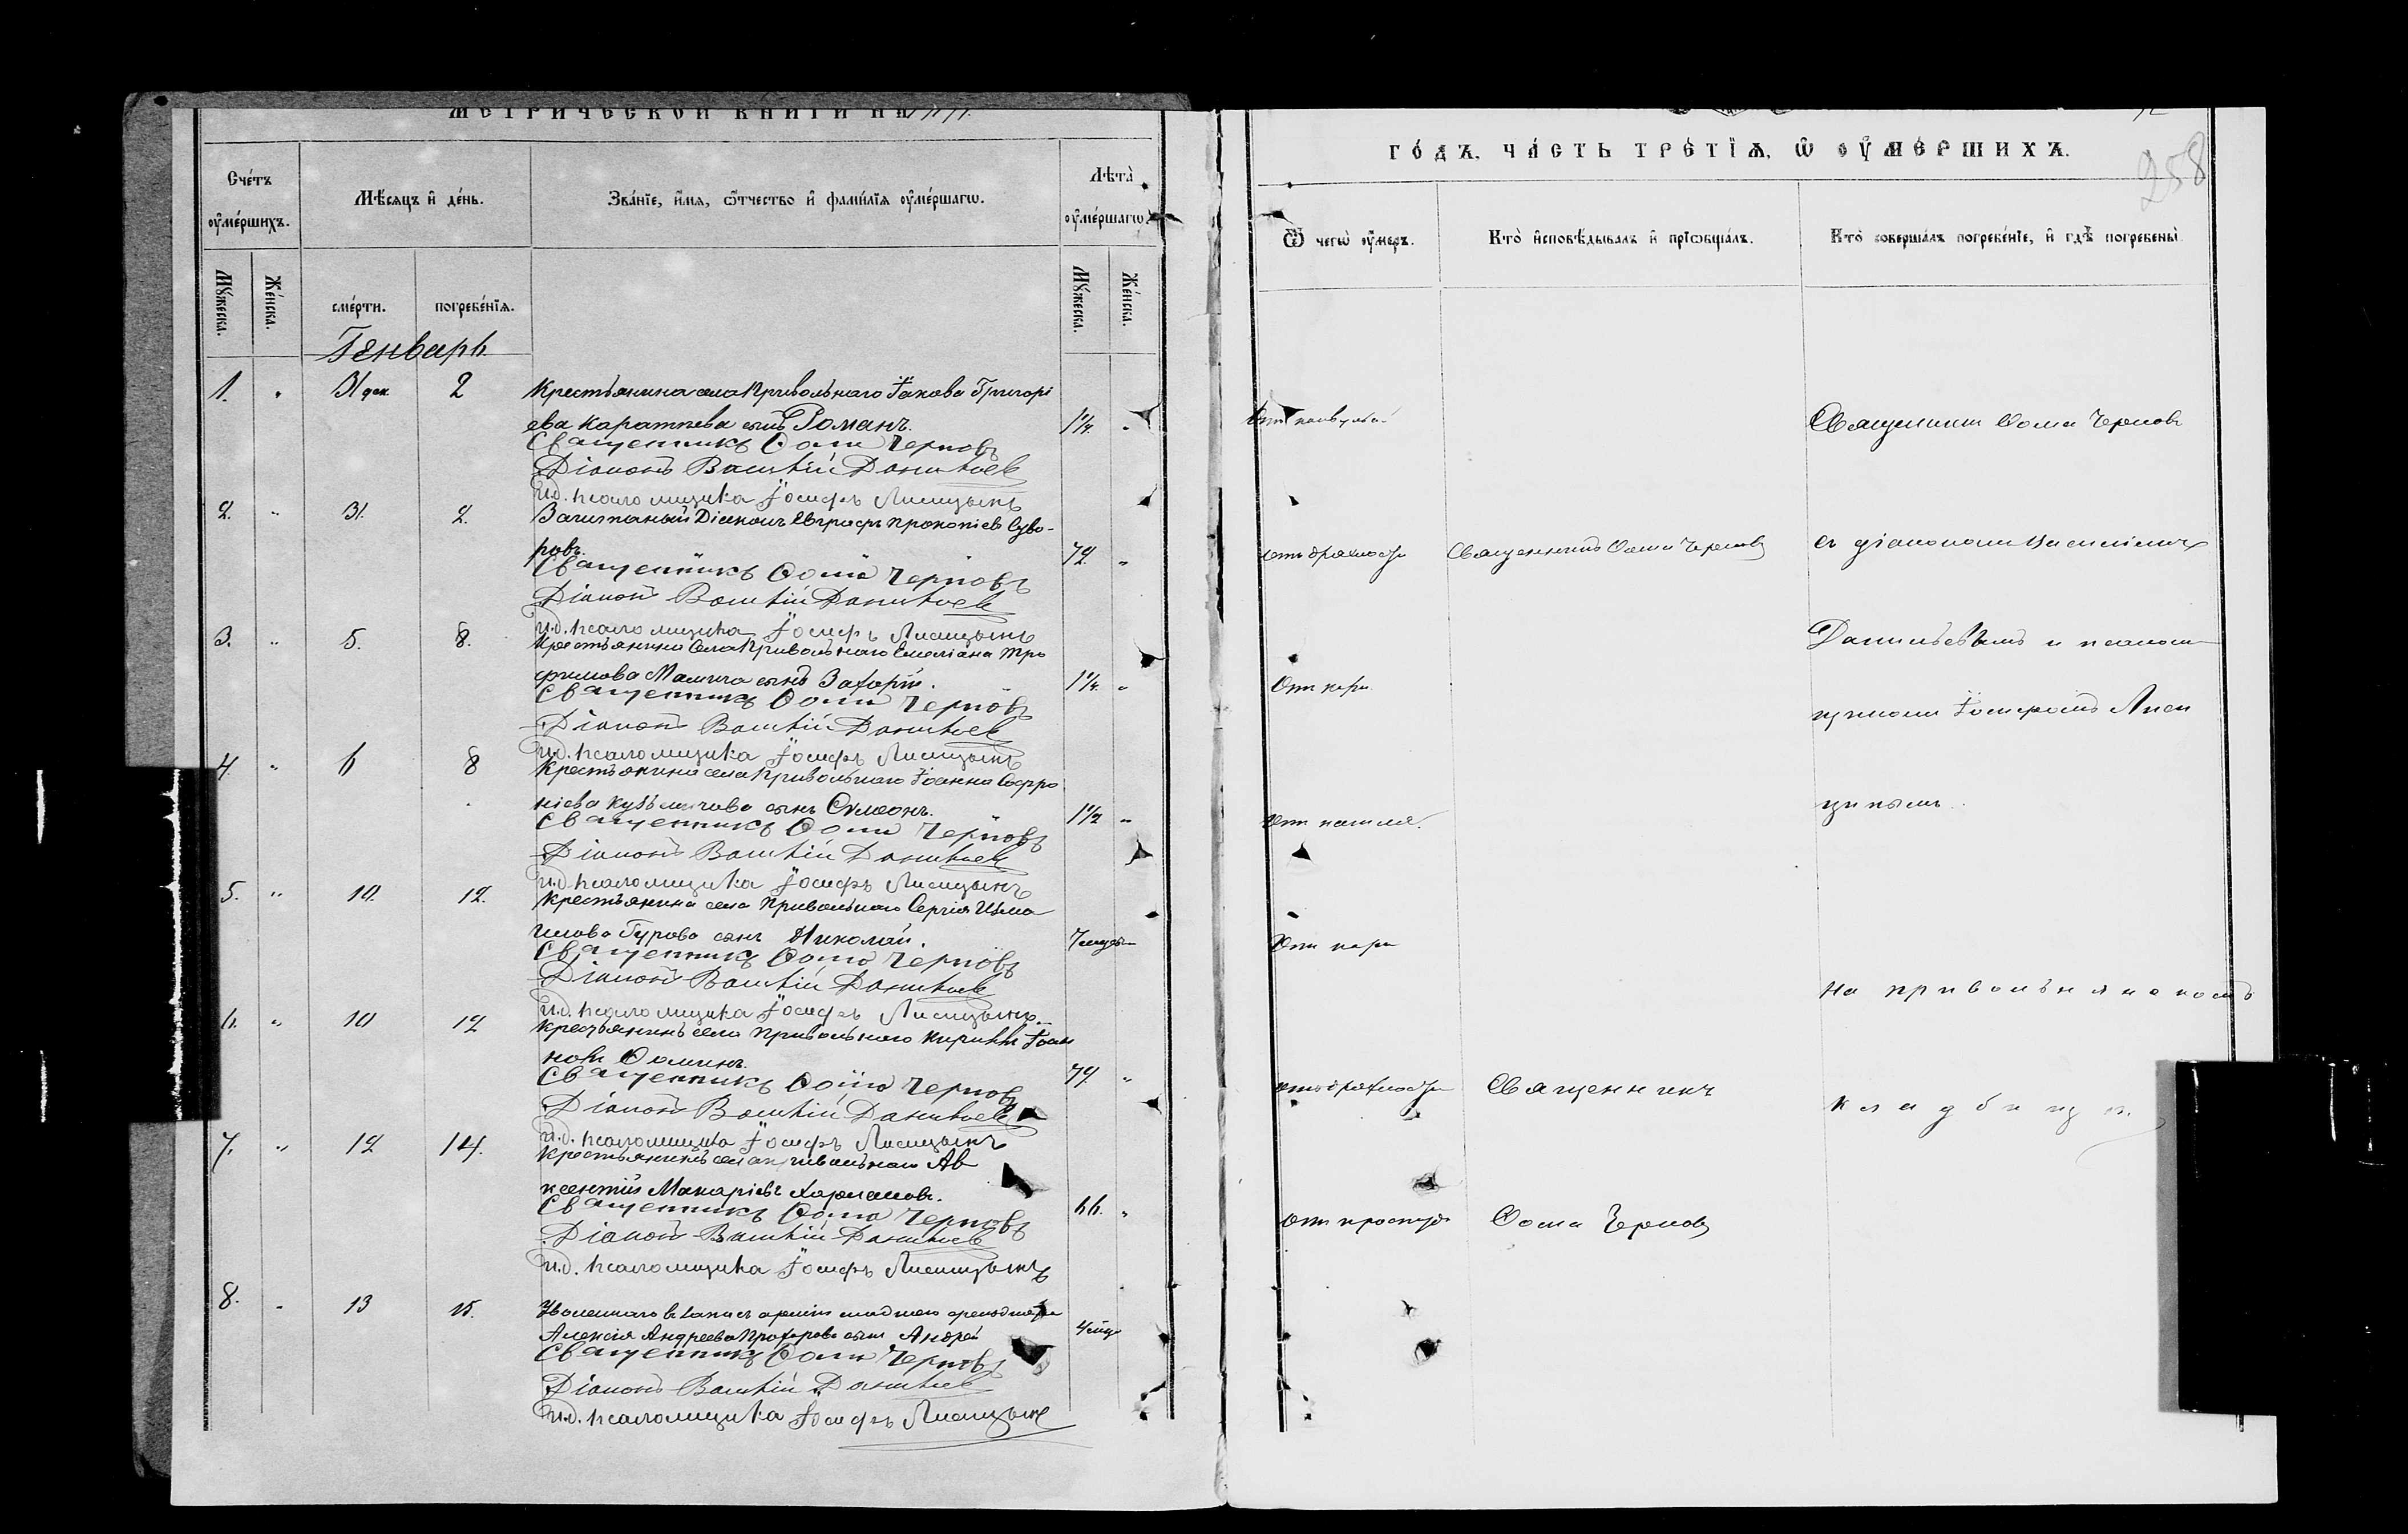 МЕТРИЧЕСКОЙ КНИГИ НА
Счéтъ оумéршихъ.
Мѣ́сяцъ и҆ дéнь.
Звáнїе, и҆́мя, ѻ҆́тчество и҆ фами́лїя оумéршагѡ.
Лѣ́та оумéршагѡ.
Мꙋ́жеска.
Жéнска.
смéрти.
погребéнїя.
Мꙋ́жеска.
Жéнска.
Генварь
1. " 31 дек. 2 Крестьянина села Привольнаго Іакова Григорі
ева Каратпева сынъ Романъ. 1¼. "
Священникъ Ѳома Черновъ
Діаконъ Василій Данильев
И.д. псаломщика Іосифъ Лисицынъ
2. " 31. 2. Заштатный Діаконъ Евграфъ Прокопіевъ Суво-
ровъ. 72. "
Священникъ Ѳома Черновъ
Діаконъ Василій Данильев
И.д. псаломщика Іосифъ Лисицынъ
3. " 5. 8. Крестьянина Села Привольнаго Емеліана Тро
фимова Мамича сынъ Захарій. 1¼. "
Священникъ Ѳома Черновъ
Діаконъ Василій Данильев
И.д. псаломщика Іосифъ Лисицынъ
4. " 6 8 Крестьянина села Привольнаго Іоанна Софро
ніева Кузьмичова сынъ Сѵмеонъ. 1½ "
Священникъ Ѳома Черновъ
Діаконъ Василій Данильев
И.д. псаломщика Іосифъ Лисицынъ
5. " 10. 12. Крестьянина села Привольнаго Сергія Изма
илова Гурова сынъ Николай. 7 месяц.
Священникъ Ѳома Черновъ
Діаконъ Василій Данильев
И.д. псаломщика Іосифъ Лисицынъ
6. " 10 12 Крестьянинъ села Привольнаго Кириллъ Іоан
новъ Ѳоминъ. 79. "
Священникъ Ѳома Черновъ
Діаконъ Василій Данильев
И.д. псаломщика Іосифъ Лисицынъ
7. " 12 14. Крестьянинъ села Привольнаго Ав
ксентій Макаріевъ Харламовъ. 66. "
Священникъ Ѳома Черновъ
Діаконъ Василій Данильев
И.д. псаломщика Іосифъ Лисицынъ
8. " 13 15. Уволеннаго в запасъ арміи младшаго
Алексія Андреева Прохорова сынъ Андрей 4 мца
Священникъ Ѳома Черновъ
Діаконъ Василій Данильев
И.д. псаломщика Іосифъ Лисицынъ
ГÓДЪ, ЧÁСТЬ ТРÉТЇЯ, Ѡ ОУМÉРШИХЪ.
258
Ѿ чегѡ̀ оу́меръ.
Ктò и҆сповѣ́дывалъ и҆ прїѡбщáлъ.
Ктò совершáлъ погребéнїе, и҆ гдѣ̀ погребены̀
Отъ
Священникъ Ѳома Черновъ
отъ дряхлости Священникъ Ѳома Черновъ съ діакономъ Василіемъ
Данильевымъ и псаломщ
Отъ кори.
щикомъ Іосифомъ Лиси
цынымъ.
отъ кашля.
Отъ кори
на привольнянскомъ
отъ дряхлости Священникъ
кладбищѣ.
отъ простуды Ѳома Черновъ